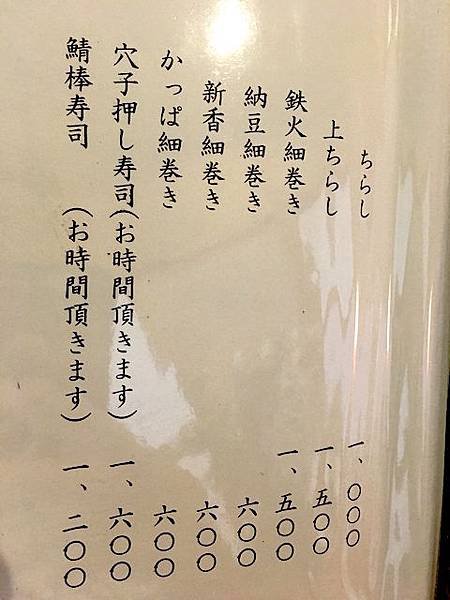 ちらし 一、〇〇〇
上ちらし 一、五〇〇
鉄火細巻き 一、五〇〇
納豆細巻き 六〇〇
新香細巻き 六〇〇
かっぱ細巻き 六〇〇
穴子押し寿司(お時間頂きます) 一、六〇〇
鯖棒寿司 (お時間頂きます) 一、二〇〇